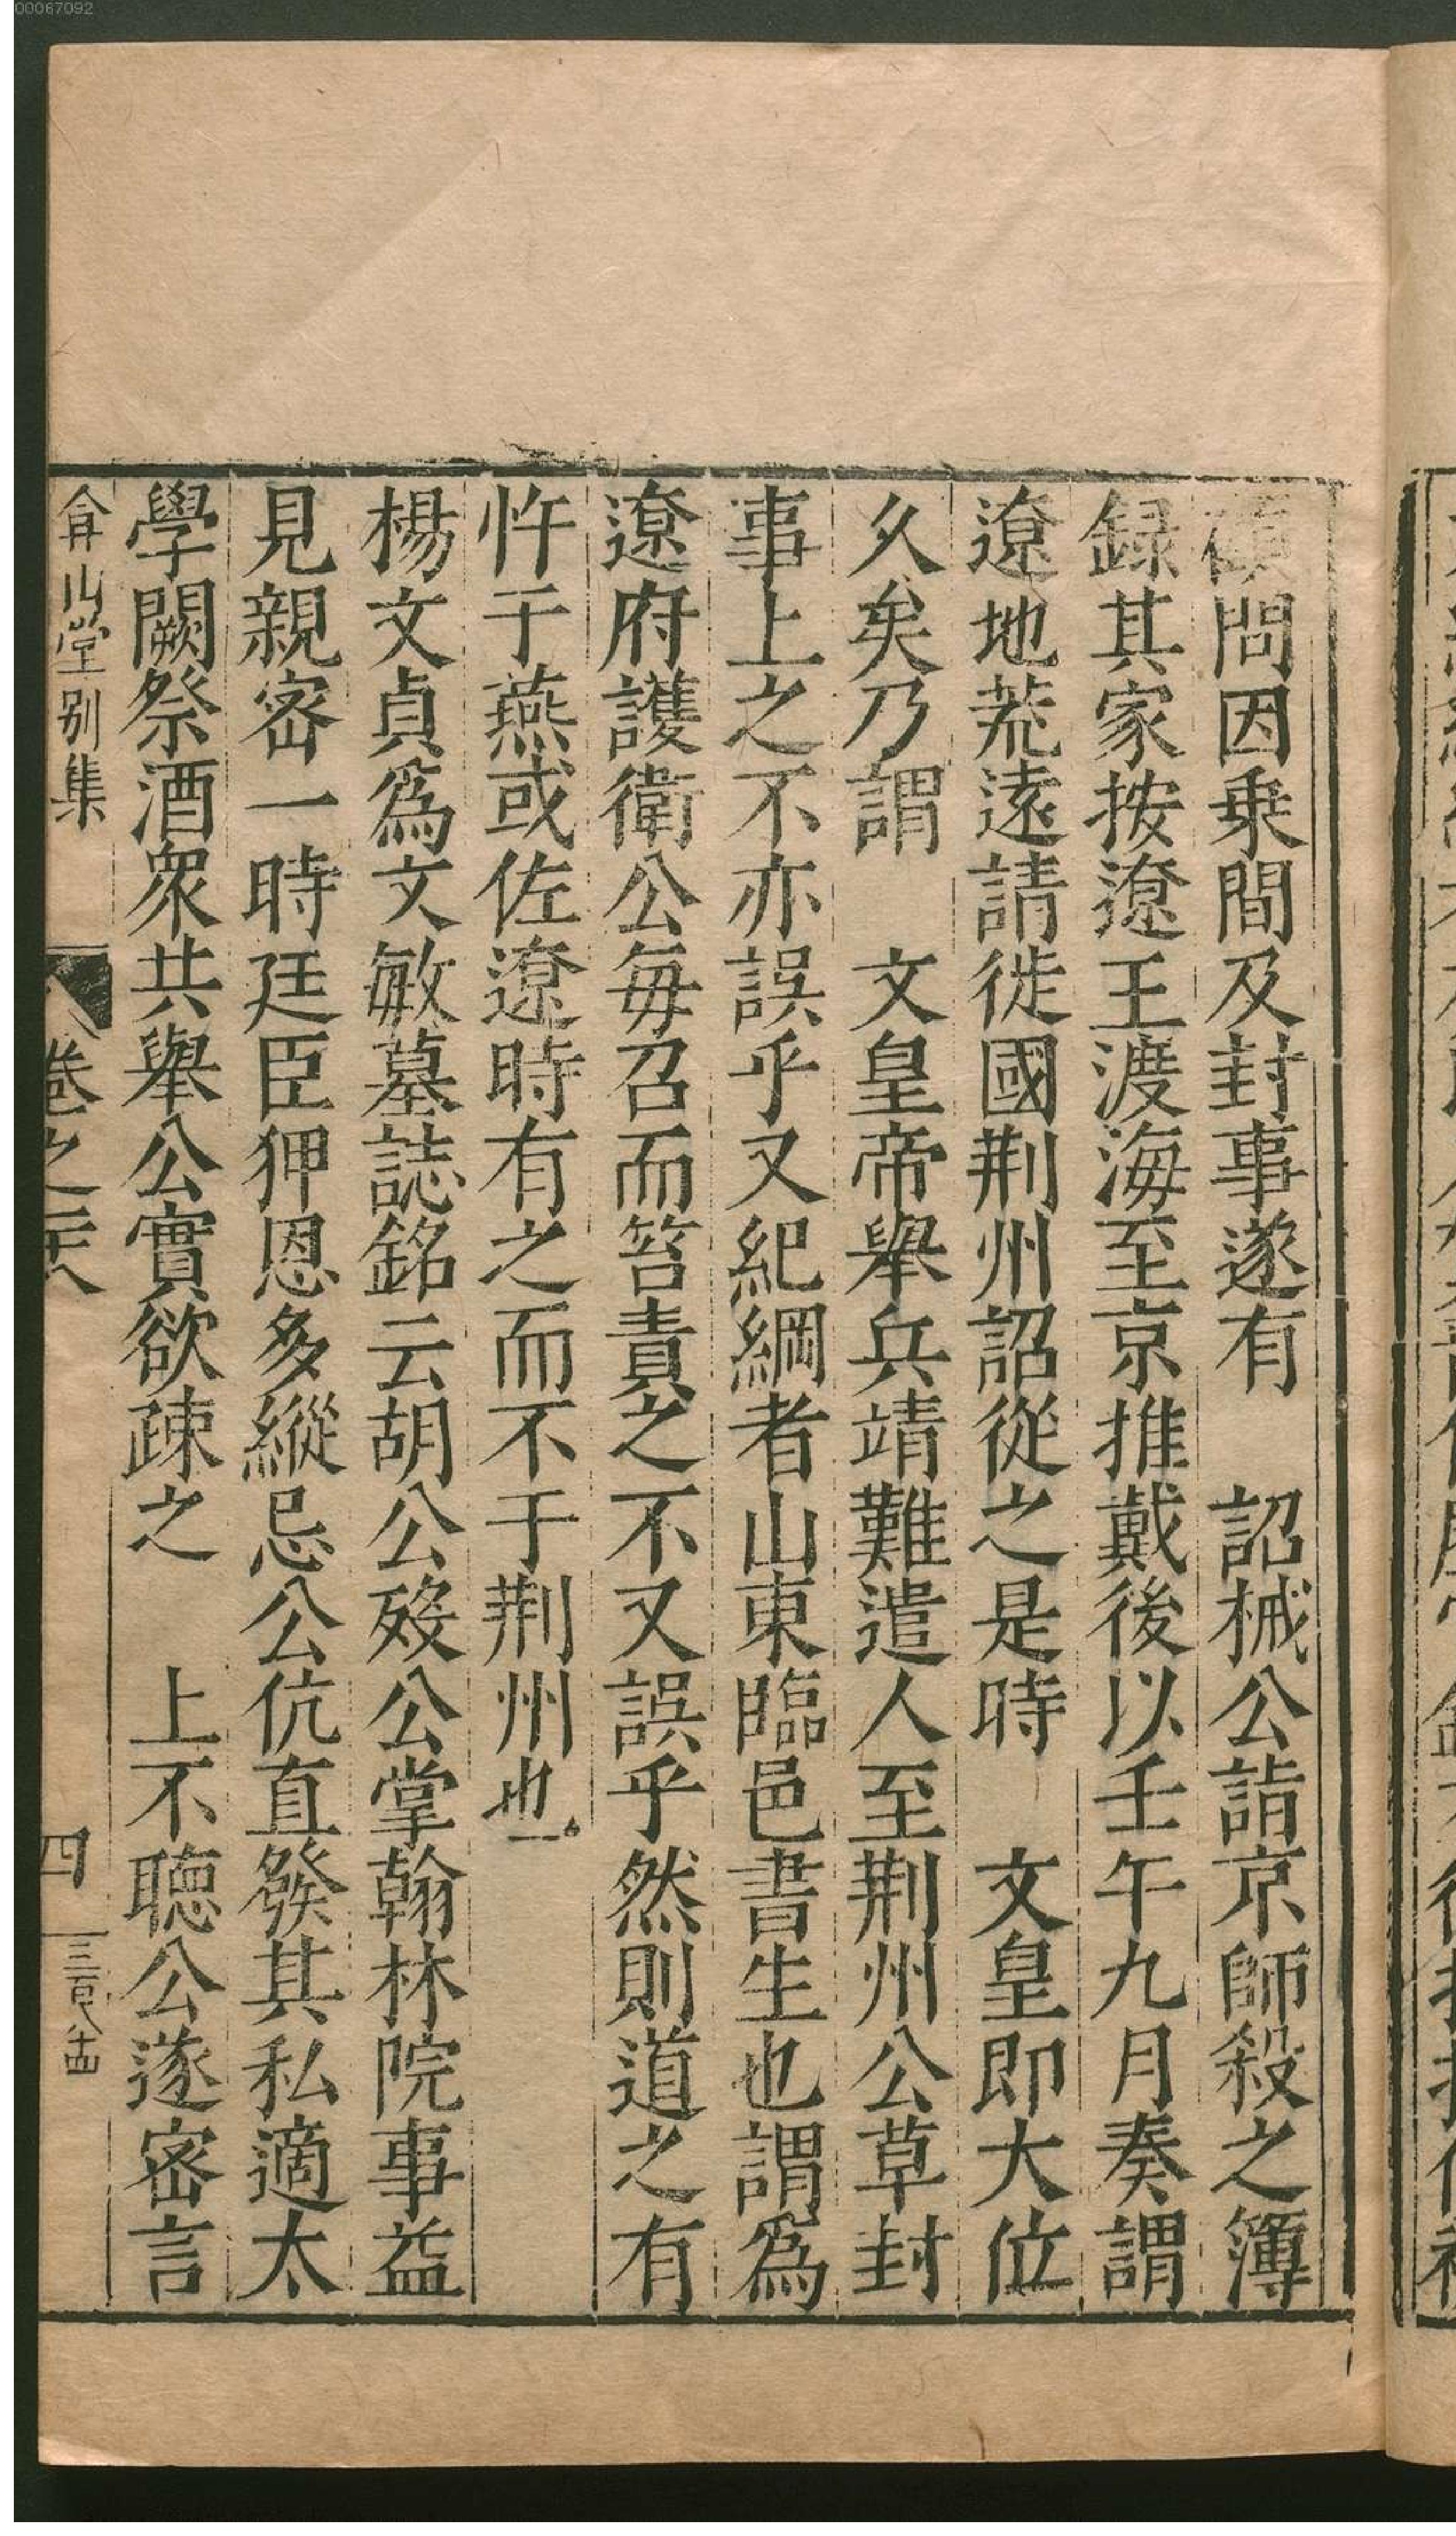 00067092
顧問因乗間及封事遂有　詔械公詣京師殺之簿
録其家按遼王渡海至京推戴後以壬午九月奏謂
遼地荒遠請徙國荆州詔從之是時　文皇即大位
久矣乃謂　文皇帝舉兵靖難遣人至荆州公草封
事上之不亦誤乎又紀綱者山東臨邑書生也謂為
遼府護衛公毎召而笞責之不又誤乎然則道之有
忤于燕或佐遼時有之而不于荆州也
楊文貞爲文敏墓誌銘云胡公歿公掌翰林院事益
見親密一時廷臣狎恩多縱忌公伉直發其私適太
學闕祭酒衆共舉公實欲疎之　上不聴公遂密言
弇山堂别集　卷之二十八　四　三百八十四